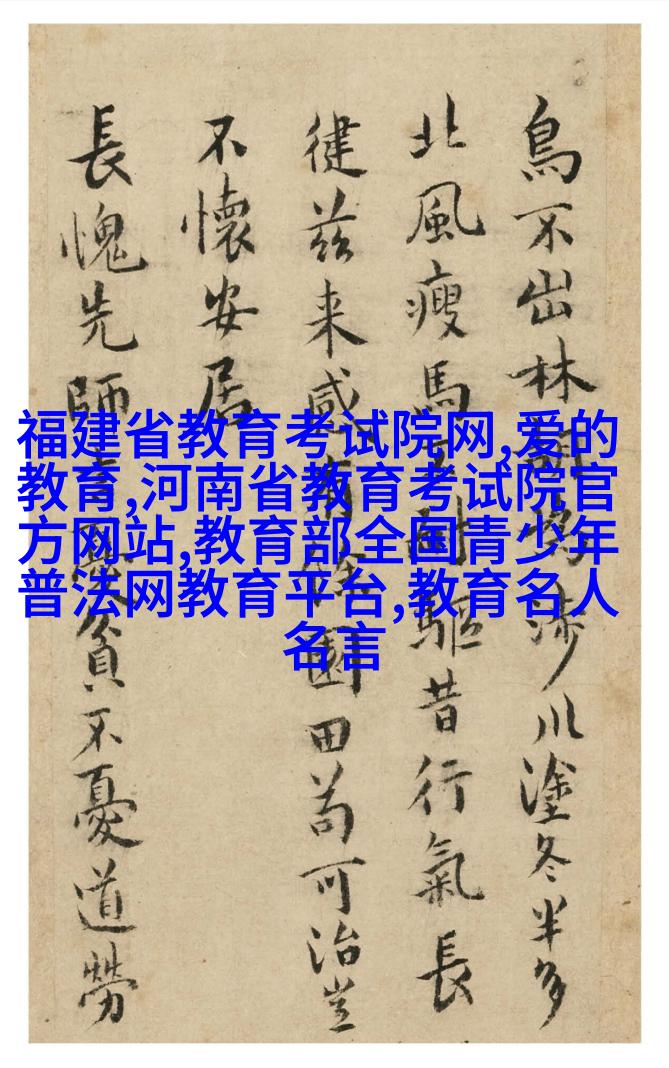 福建省教育考试院网,爱的
教育,河南省教育考试院官
方网站,教育部全国青少年
普法网教育平台,教育名人
名言
鳥不出林涉川塗冬半多
北風瘦馬驅昔行氣長
徤兹来感園田苟可治豈
不懷安居
長愧先師貧不憂道勞